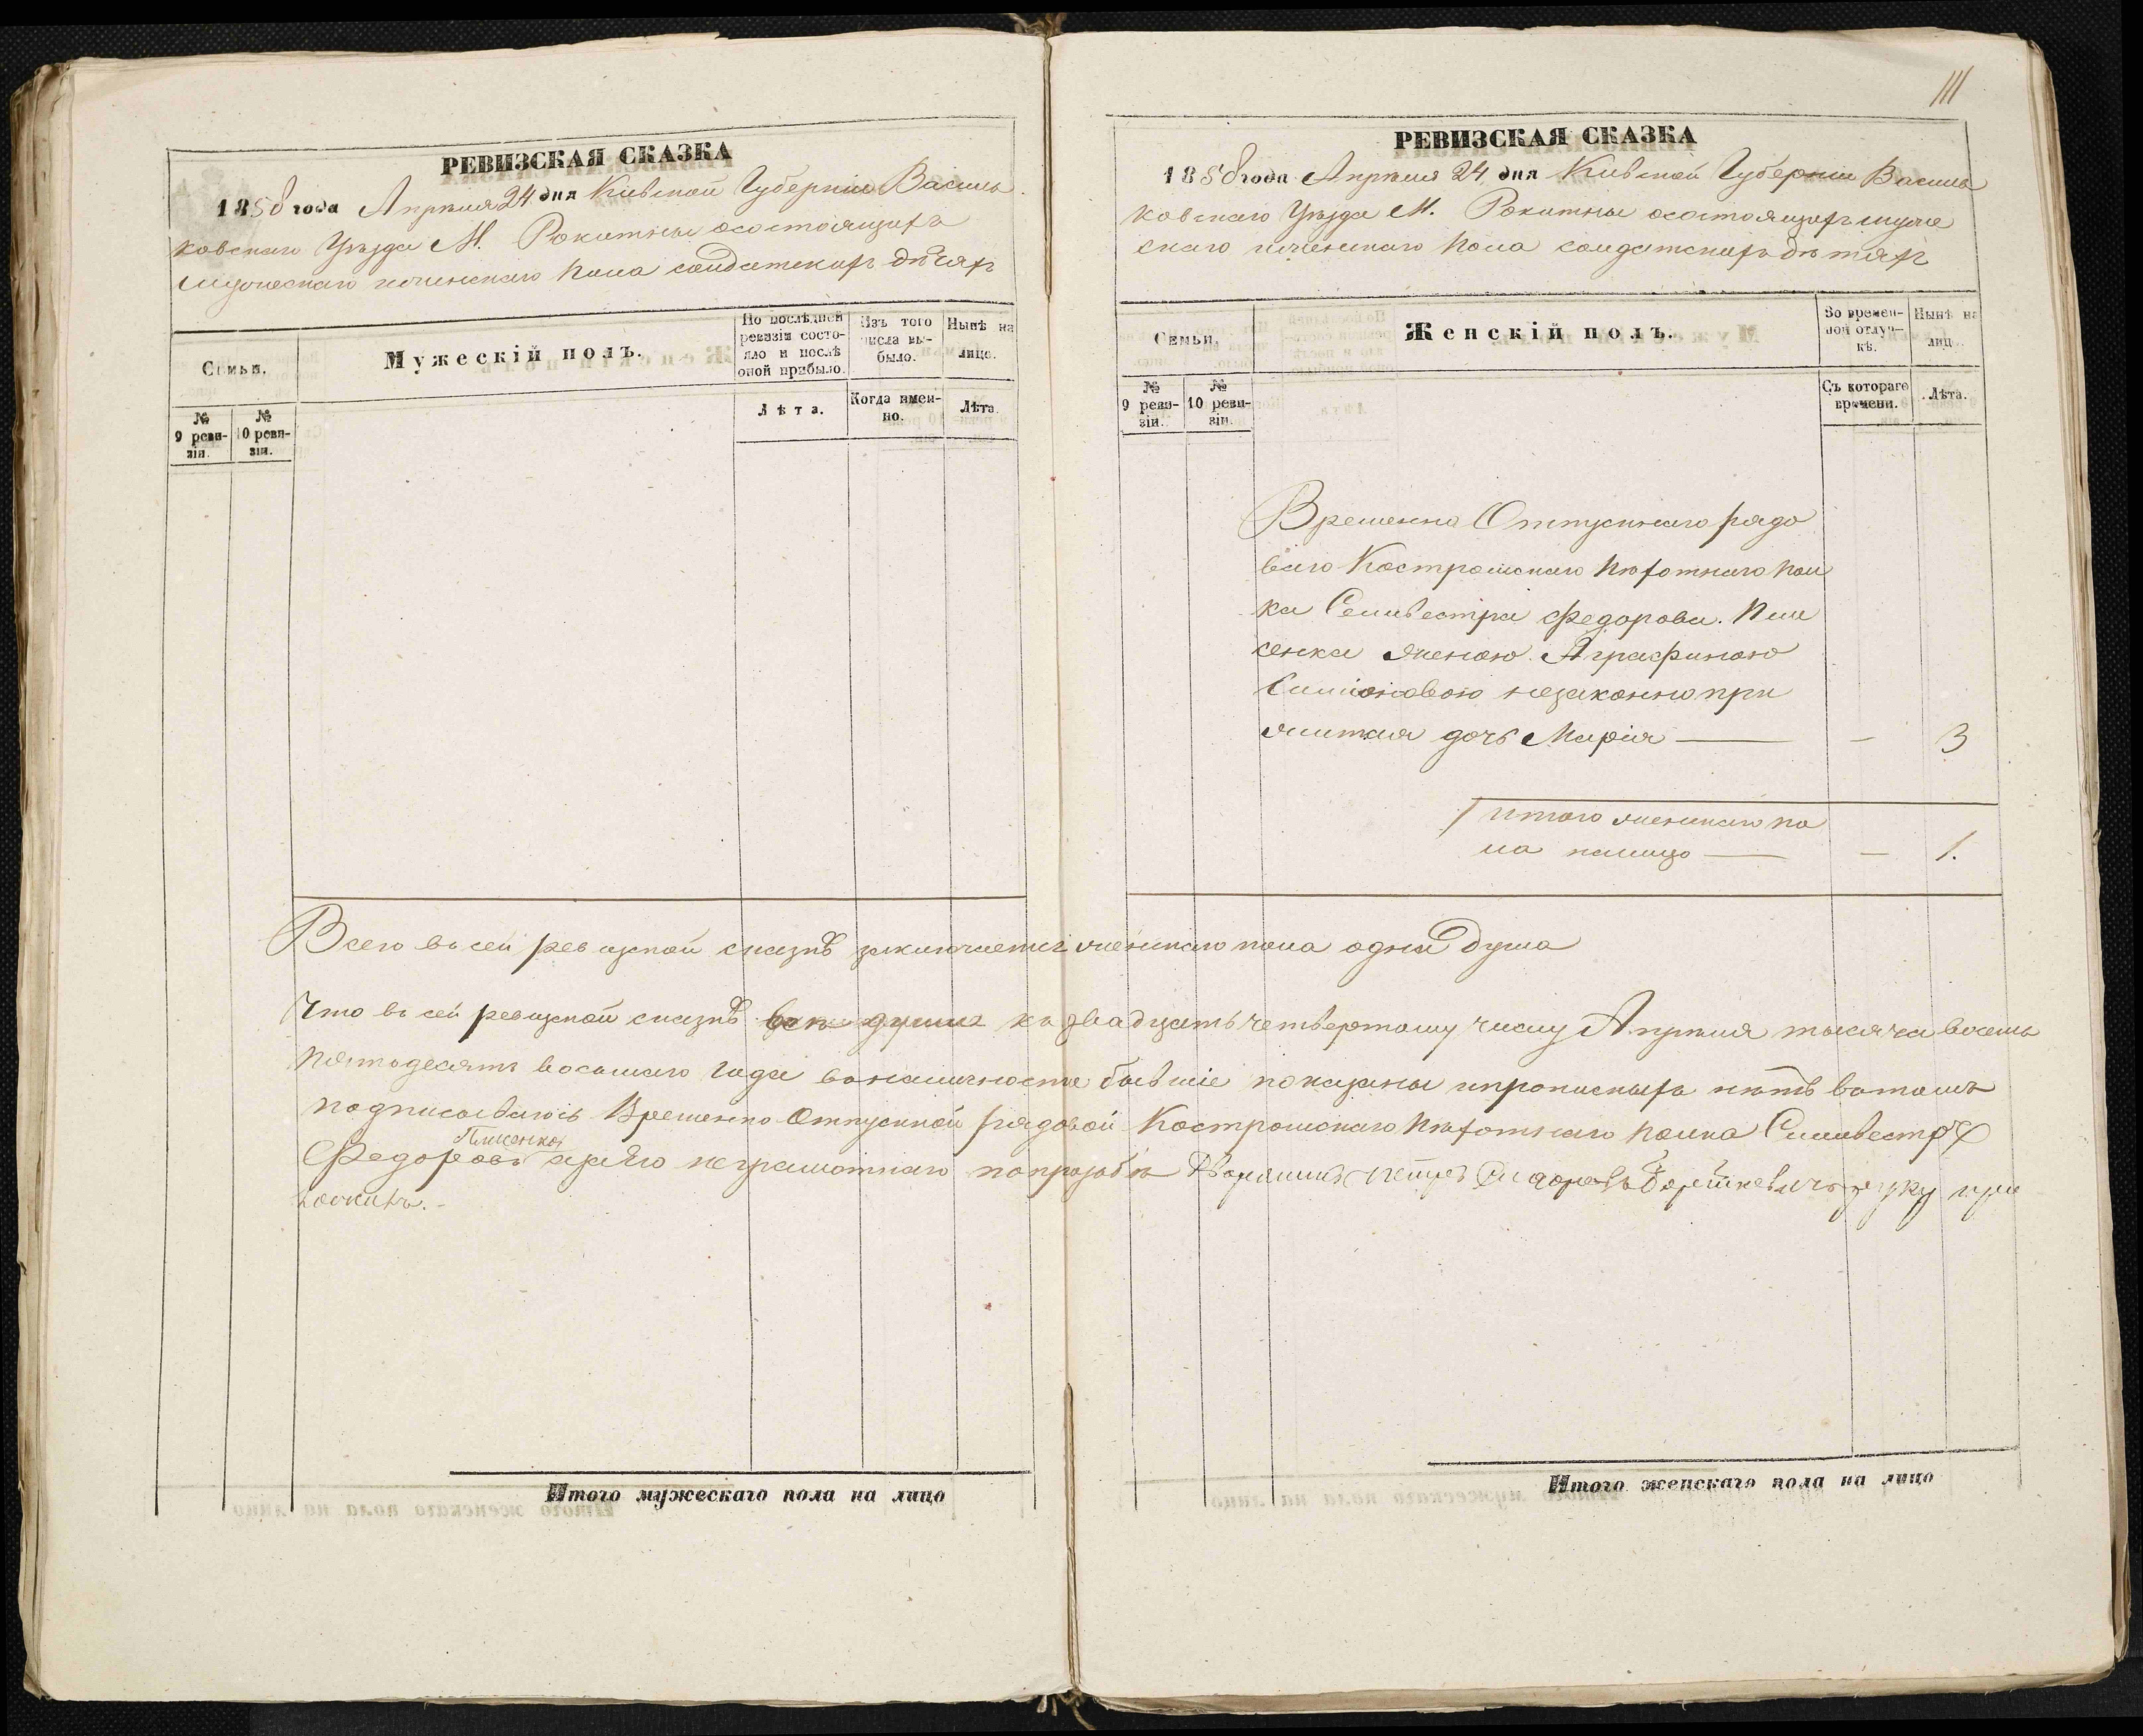 111
РЕВИЗСКАЯ СКАЗКА
1858 года Апрѣля 24 дня Кіевской Губерніи Василь
ковскаго Уѣзда М. Рокитны осостоящихъ
мужескаго иженскаго пола солдатскихъ дѣтяхъ
Семьи.
Мужескій полъ.
По послѣдней ревизіи состояло и послѣ оной прибыло.
Изъ того числа выбыло.
Нынѣ на лицо.
№ 9 ревизіи.
№ 10 ревизіи.
Лѣта.
Когда именно.
Лѣта.
РЕВИЗСКАЯ СКАЗКА
1858 года Апрѣля 24 дня Кіевской Губерніи Василь
ковскаго Уѣзда М. Рокитны осостоящихъ муже
скаго иженскаго пола солдатскихъ дѣтяхъ
Семьи.
Женскій полъ.
Во временной отлучкѣ.
Нынѣ на лицо.
№ 9 ревизіи.
№ 10 ревизіи.
Съ котораго времени.
Лѣта.
Временно Отпускнаго рядо
ваго Костромскаго пѣхотнаго пол
ка Селивестра Федорова. Пли
сенка женою Аграфиною
Симіоновою незаконно при
житая дочь Марія — — 3
Итого женскаго по
ла налицо — — 1.
Всего въ сей ревизкой сказкѣ заключается женскаго пола одна душа
Что въ сей ревизкой сказкѣ всѣ души къ двадцать четвертому числу Апрѣля тысяча восемь
пятьдесятъ восьмаго года вналичности бывшіе показаны ипрописныхъ нѣтъ втомъ
подписываюсь Временно Отпускной рядовой Костромскаго пѣхотнаго полка Силивестръ
Федоровъ Плисенко, аза Его неграмотнаго попрозьбѣ Дворянинъ Петръ руку при
ложилъ.
Итого мужескаго пола на лицо
Итого женскаго пола на лицо